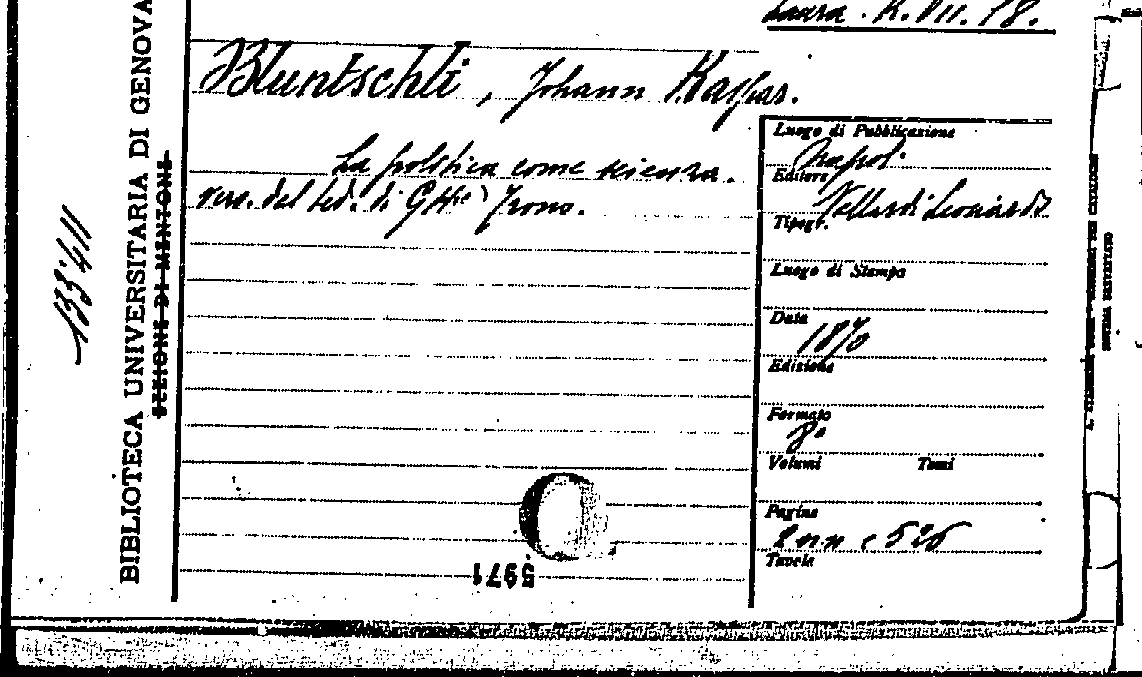 Laura. K. VII. 78.
Bluntschli, Johann Kaspar.
La politica come scienza.
vers. del ted. di Trono.
Luogo di Pubblicazione
Napoli
Editore
Vallardi Leonardo
Tipogr.
Luogo di Stampa
Data
1870
Edizione
Formato
8°
Volumi Tomi
Pagine
2 nn, 526
Tavole
133411
BIBLIOTECA UNIVERSITARIA DI GENOVA
SEZIONE DI MENTONE
5971